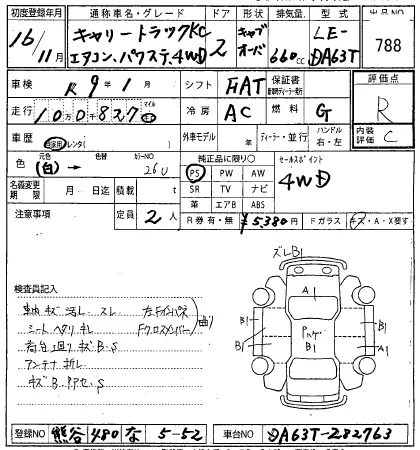 初度登録年月 通称車名・グレード ドア 形状 排気量 型式 出品NO
16/11月 キャリートラックKC エアコン、パワステ、4WD 2 キャブオーバ 660cc LE-DA63T 788
車検 R 9年 1月 シフト FAT 保証書 評価点
走行 10万0千827 マイル 冷房 AC 燃料 G R
車歴 自家用 レンタ( ) 外車モデル 年 ディーラー・並行 ハンドル 右・左 内装評価 C
色 元色 (白)→ 色替 カラーNO 26U 純正品に限り○ セールスポイント
PS PW AW 4WD
名義変更期限 月 日迄 積載 t SR TV ナビ
革 エアB ABS
注意事項 定員 2人 R券 有・無 ¥5,380 Fガラス キズ・A・X要す
検査員記入 ズレB1
車内キズ 汚レ スレ 左Fインパネ
シートヘタリ キレ Fクロスメンバー 曲り
荷台廻りキズB.S
アンテナ折レ
キズB.Pアセ.S
A1
B1 B1 Pハゲ B1 B1
B1 A1
登録NO 熊谷 480 な 5-52 車台NO DA63T-282763